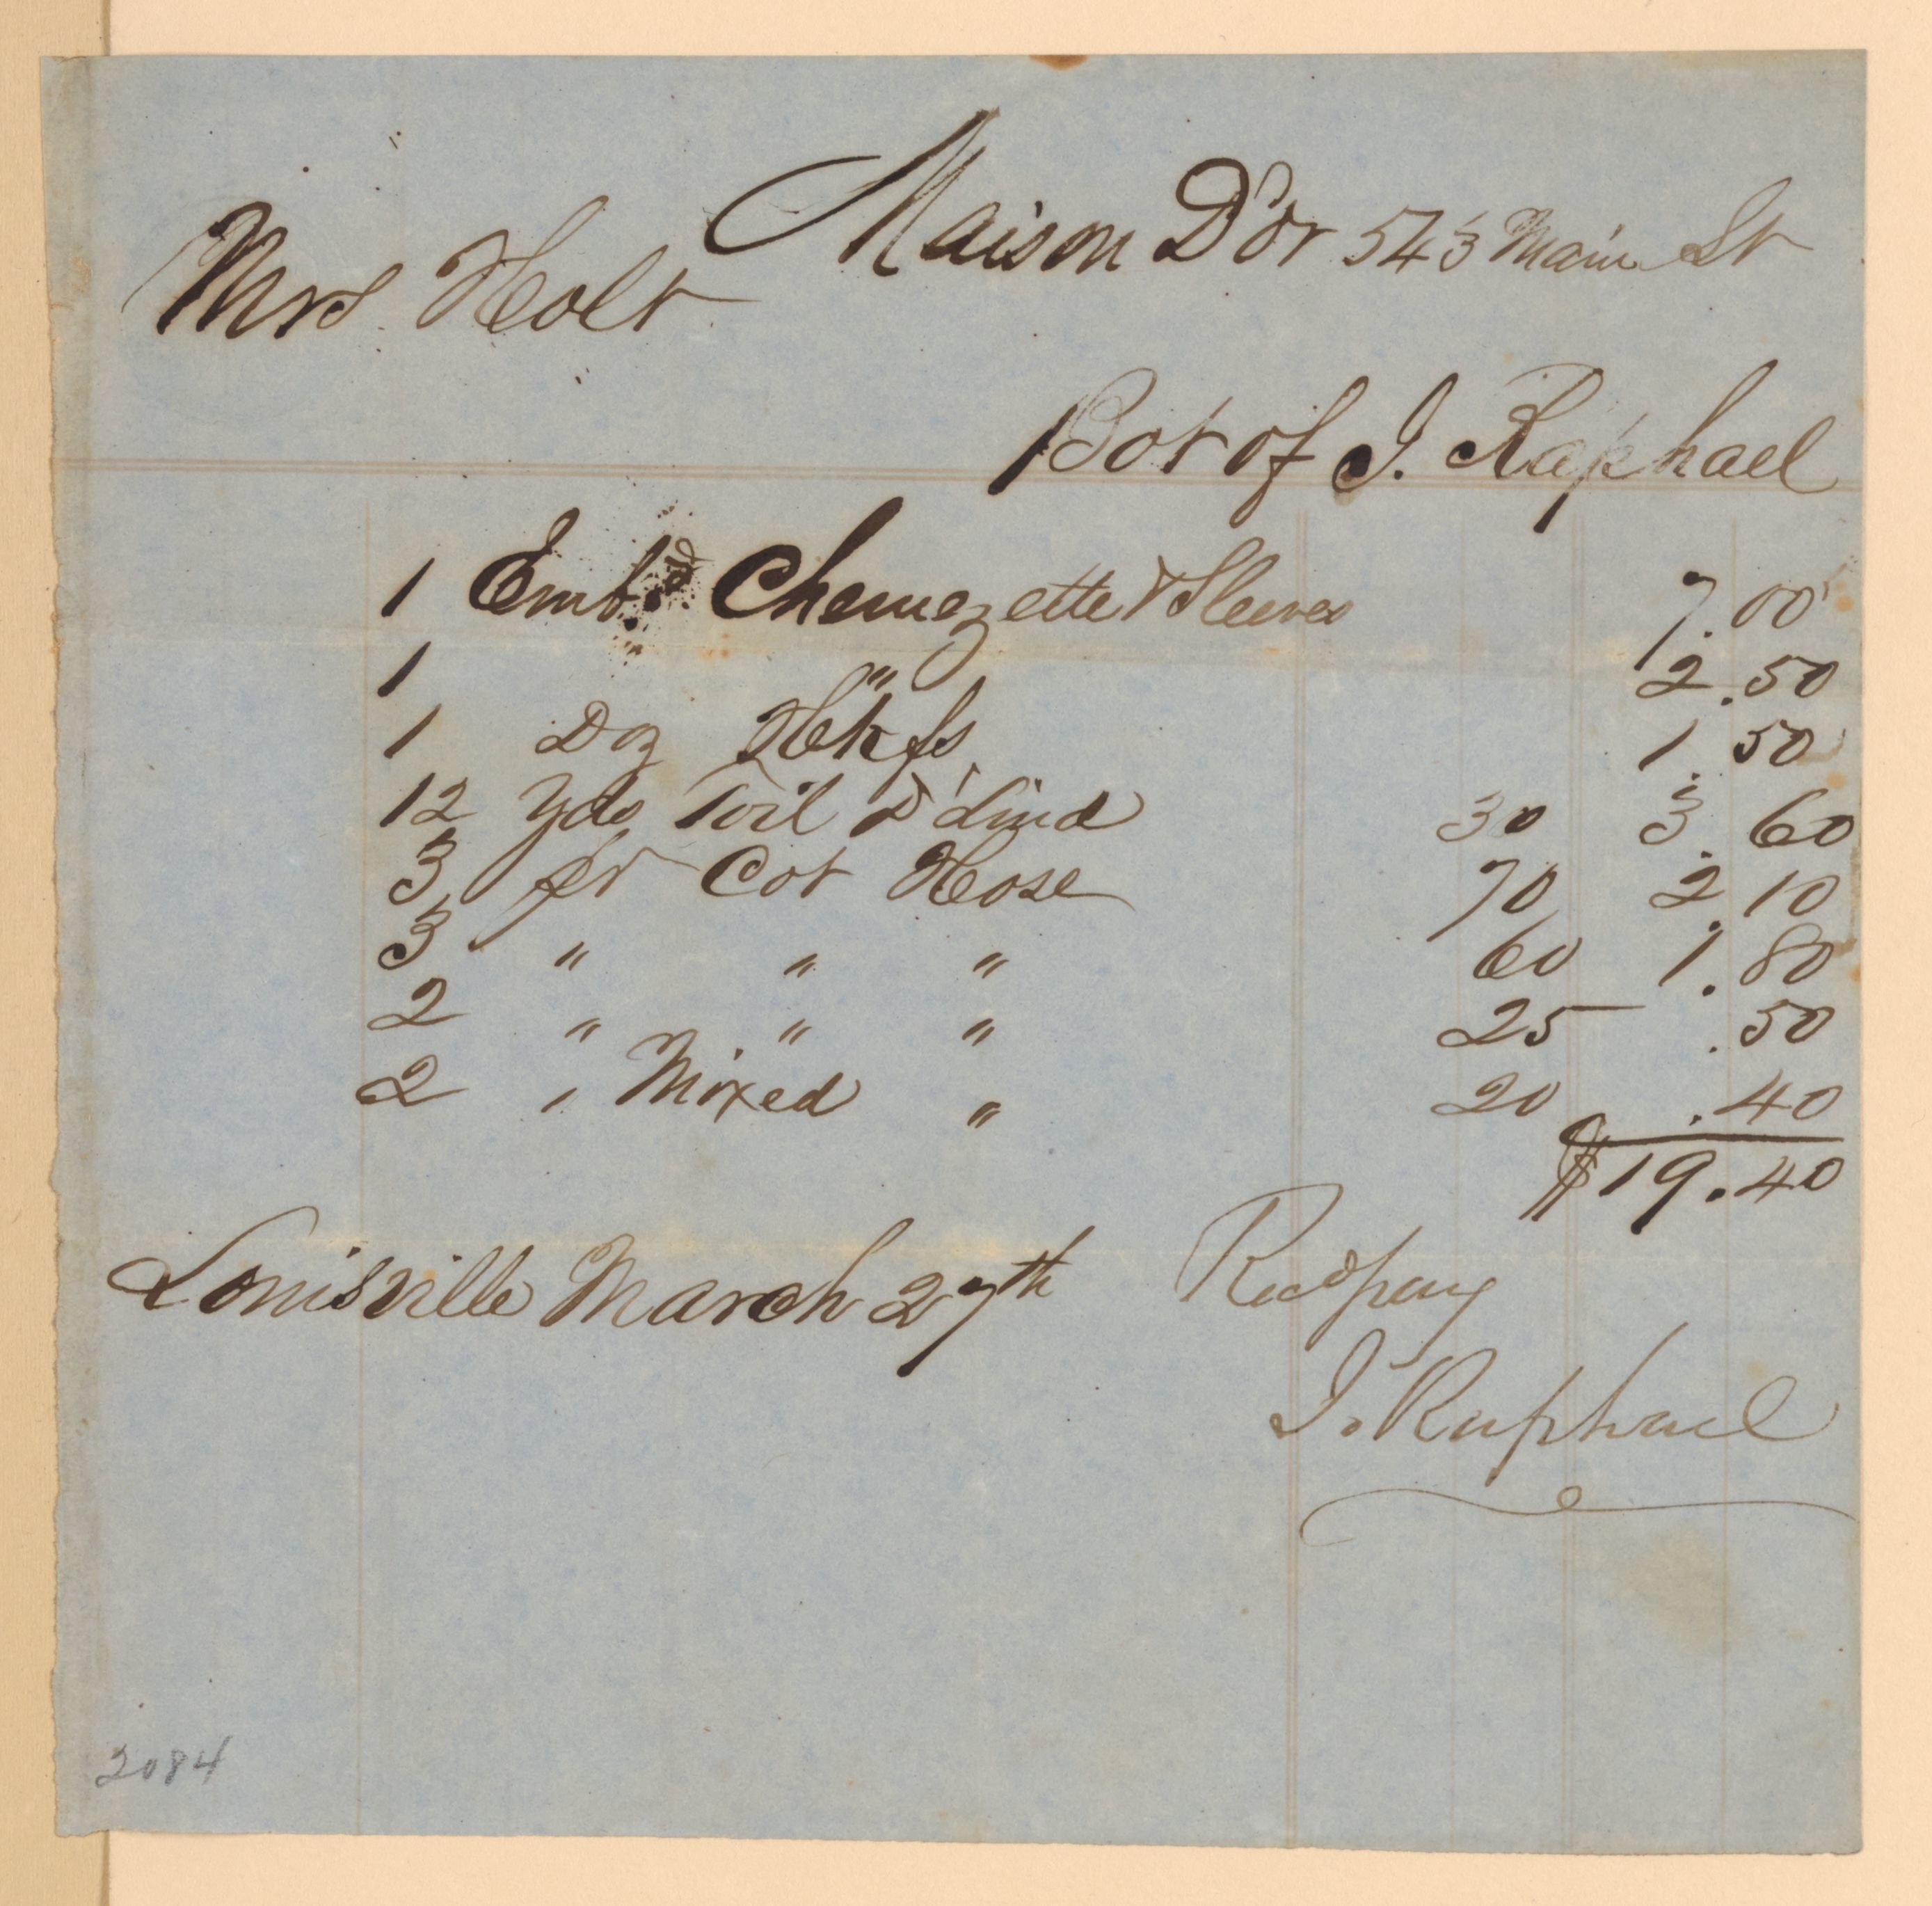 Maison D'or 543 Main St
Mrs Holt
Bot of J. Raphael
1 Emb.d Chemezette & Sleeves 7.00
1 " 2.50
1 Doz Hhkfs 1.50
12 Yds Toil D'Lind 30 3.60
3 pr Cot Hose 70 2.10
3 " " " 60 1.80
2 " " " 25 .50
2 " Mixed " 20 .40
$19.40
Louisville March 27th Recd pay
J. Raphael
2084